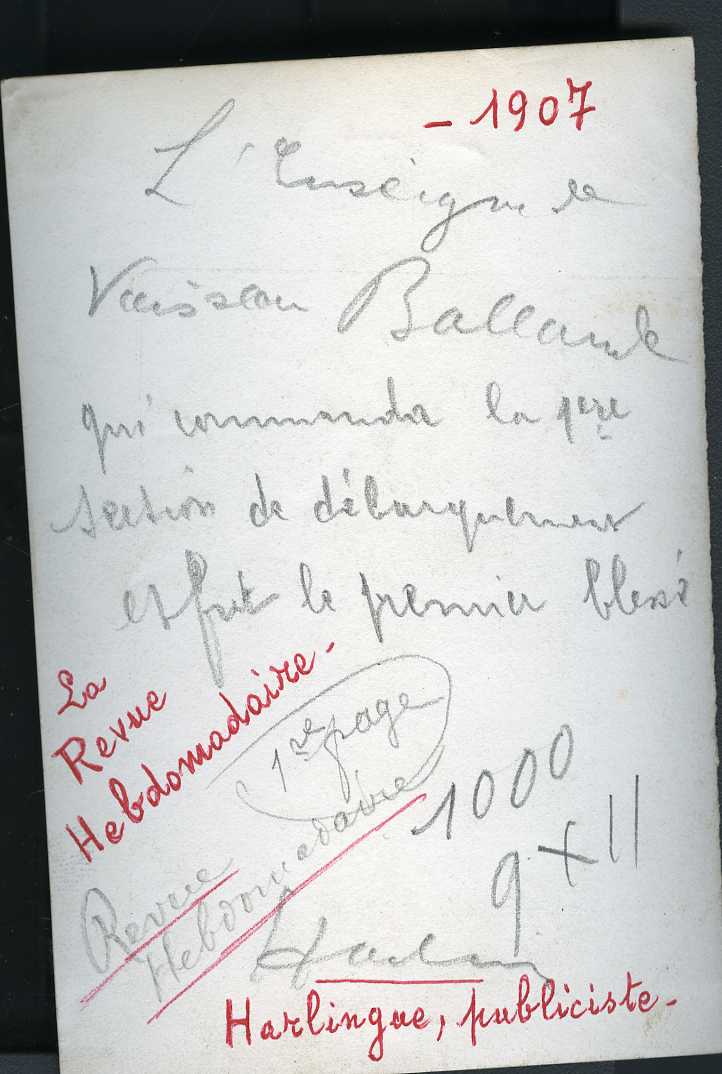 - 1907
L'Enseigne de
Vaisseau Ballande
qui commanda la 1ere
section de débarquement
et fut le premier blessé
La
Revue
Hebdomadaire -
1re page
1000
9 x 11
Revue
Hebdomadaire
Harlingue, publiciste -